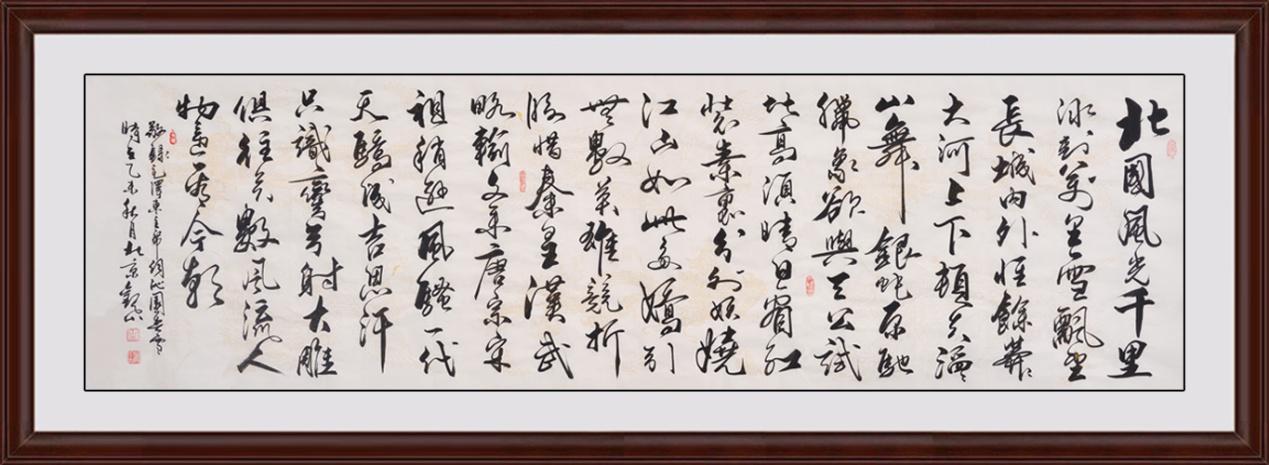 北國風光千里
冰封萬里雪飄望
長城内外惟餘莽〻
大河上下頓失滔〻
山舞銀蛇原馳
臘象欲與天公試
比高須晴日看紅
裝素裹分外妖嬈
江山如此多嬌引
無數英雄競折
腰惜秦皇漢武
略輸文采唐宗宋
祖稍遜風騷一代
天驕成吉思汗
只識彎弓射大雕
俱往矣數風流人
物還看今朝
敬録毛澤東主席詞沁園春雪
時在乙未秋月於京